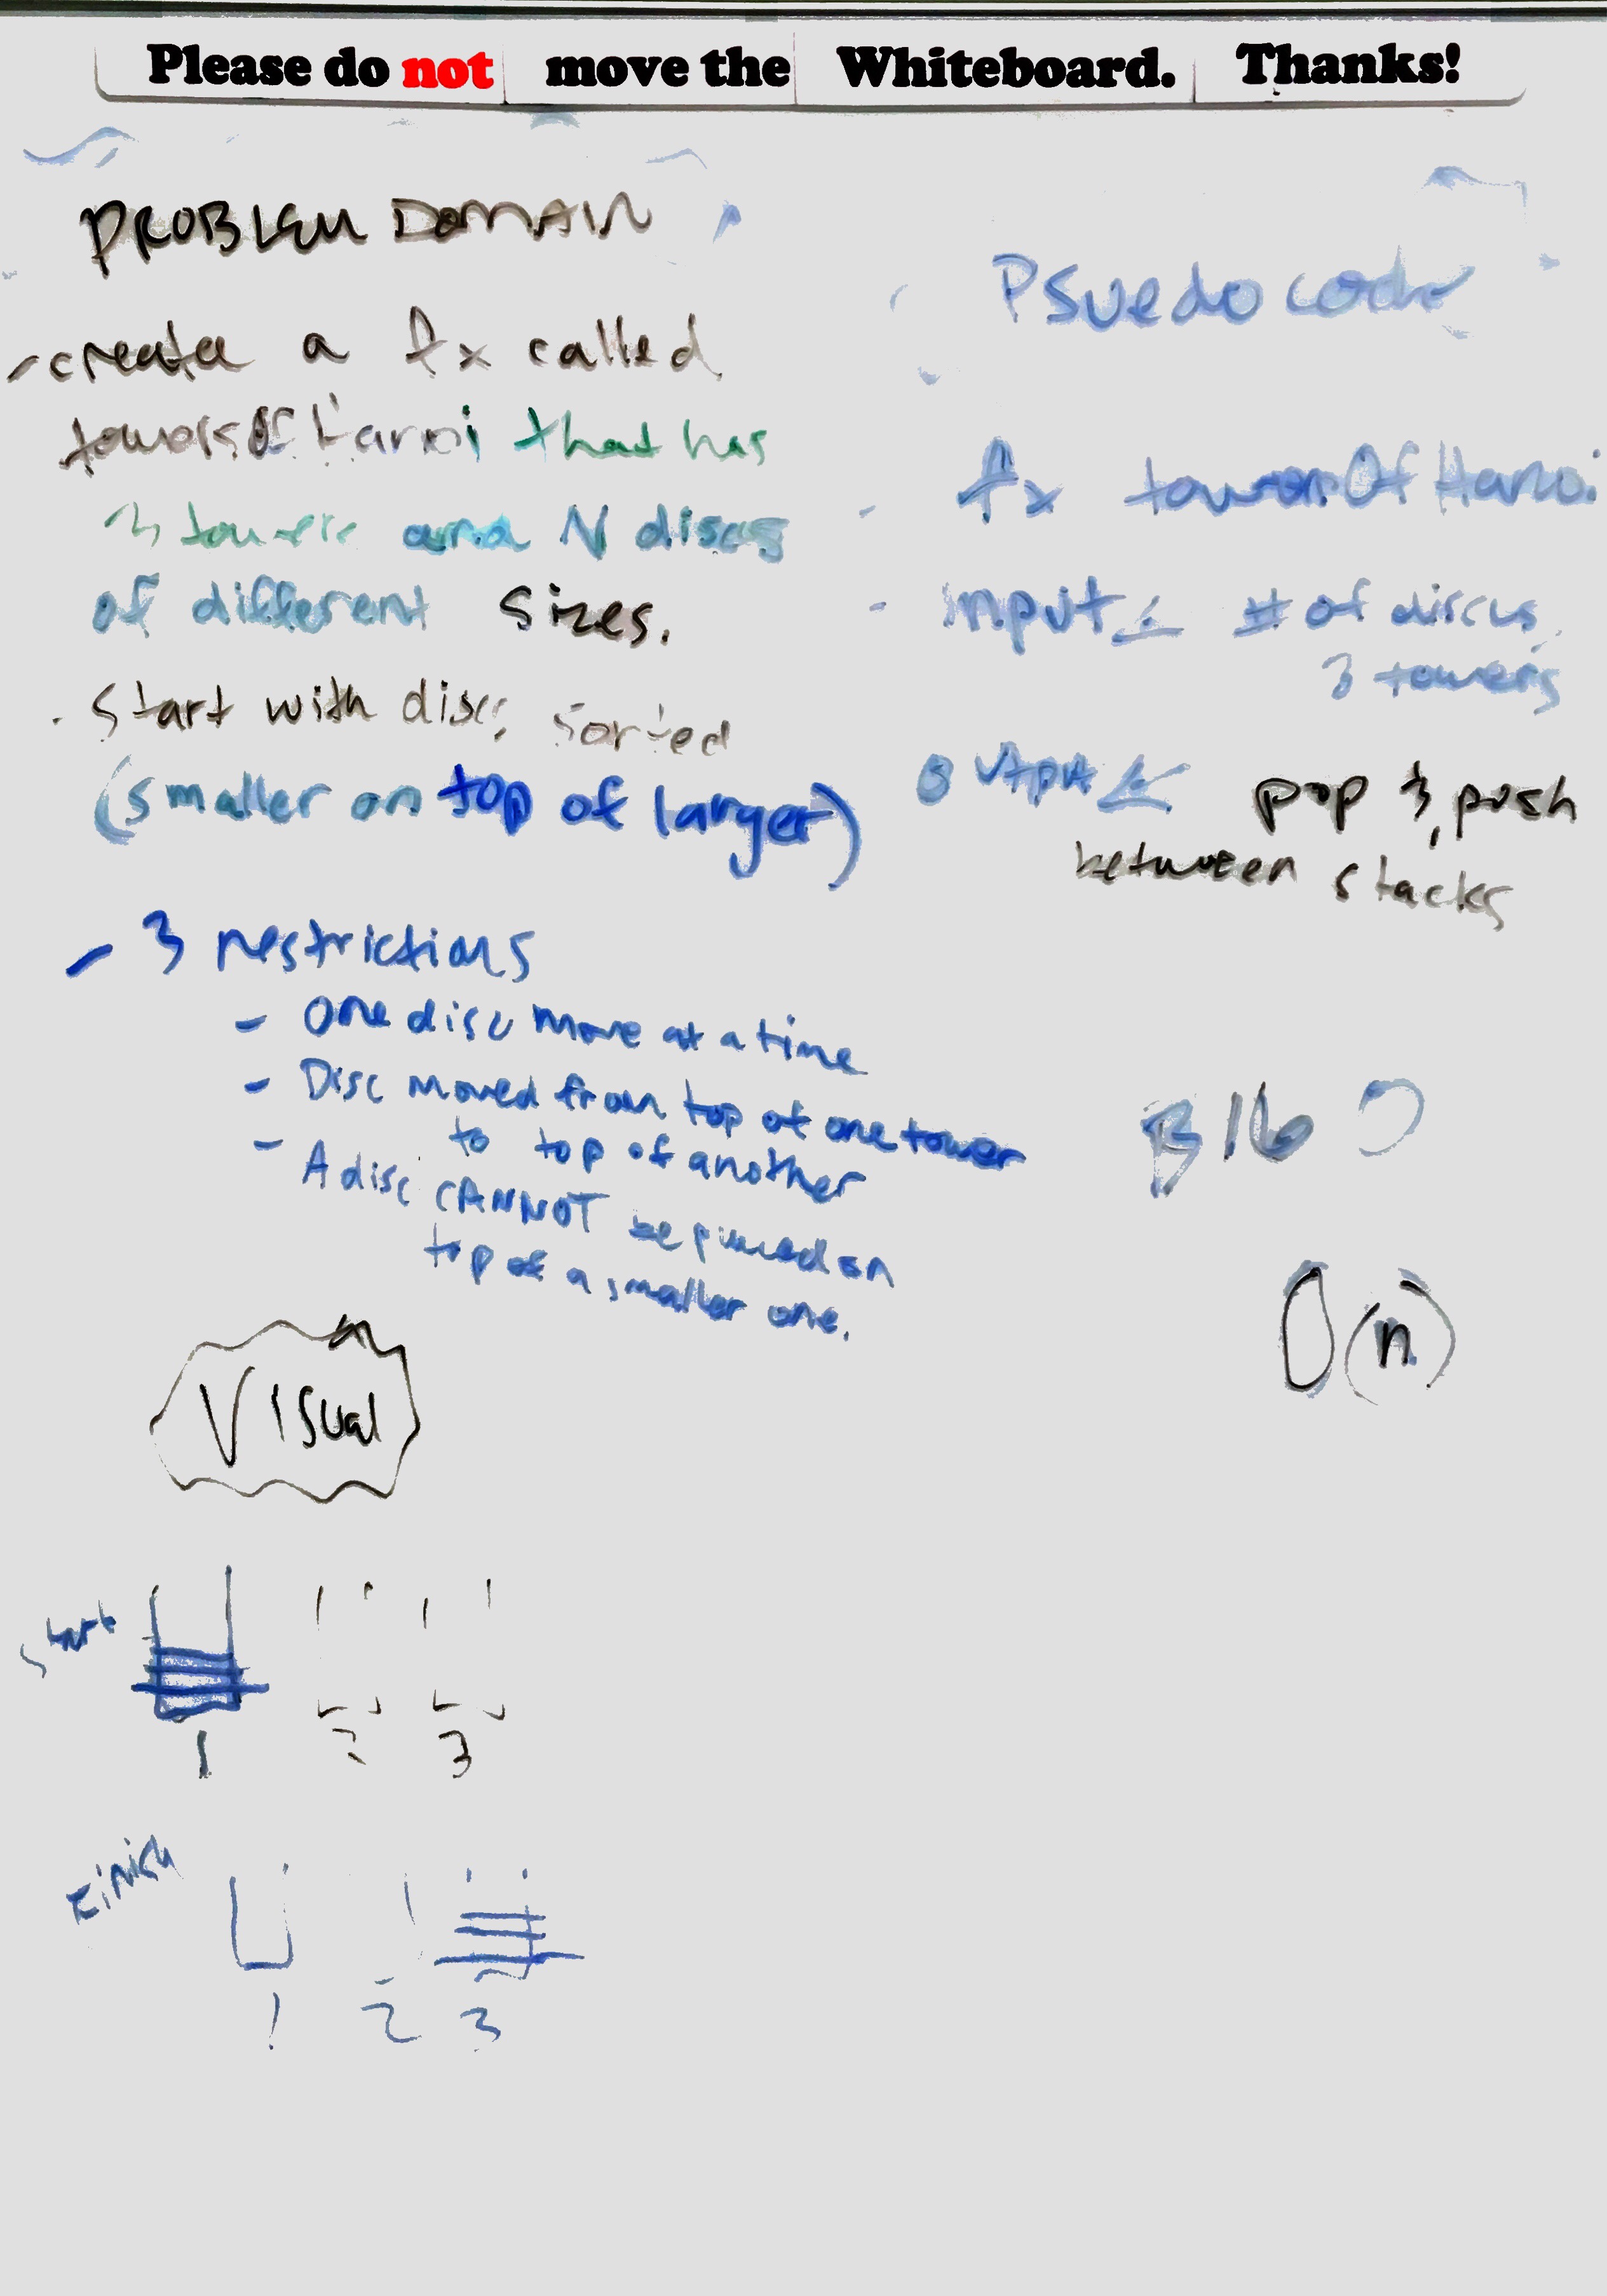 Please do not move the Whiteboard. Thanks!
PROBLEM DOMAIN
- create a fx called
towersOfHanoi that has
3 towers and N discs
of different sizes.
. Start with discs sorted
(smaller on top of larger)
- 3 restrictions
- One disc move at a time
- Disc moved from top of one tower
to top of another
- A disc CANNOT be placed on
top of a smaller one.
Visual
Start
1 2 3
Finish
1 2 3
Psuedo code
fx towersOfHanoi
input ← # of discs,
3 towers
output ← pop & push
between stacks
BIG O
O(n)